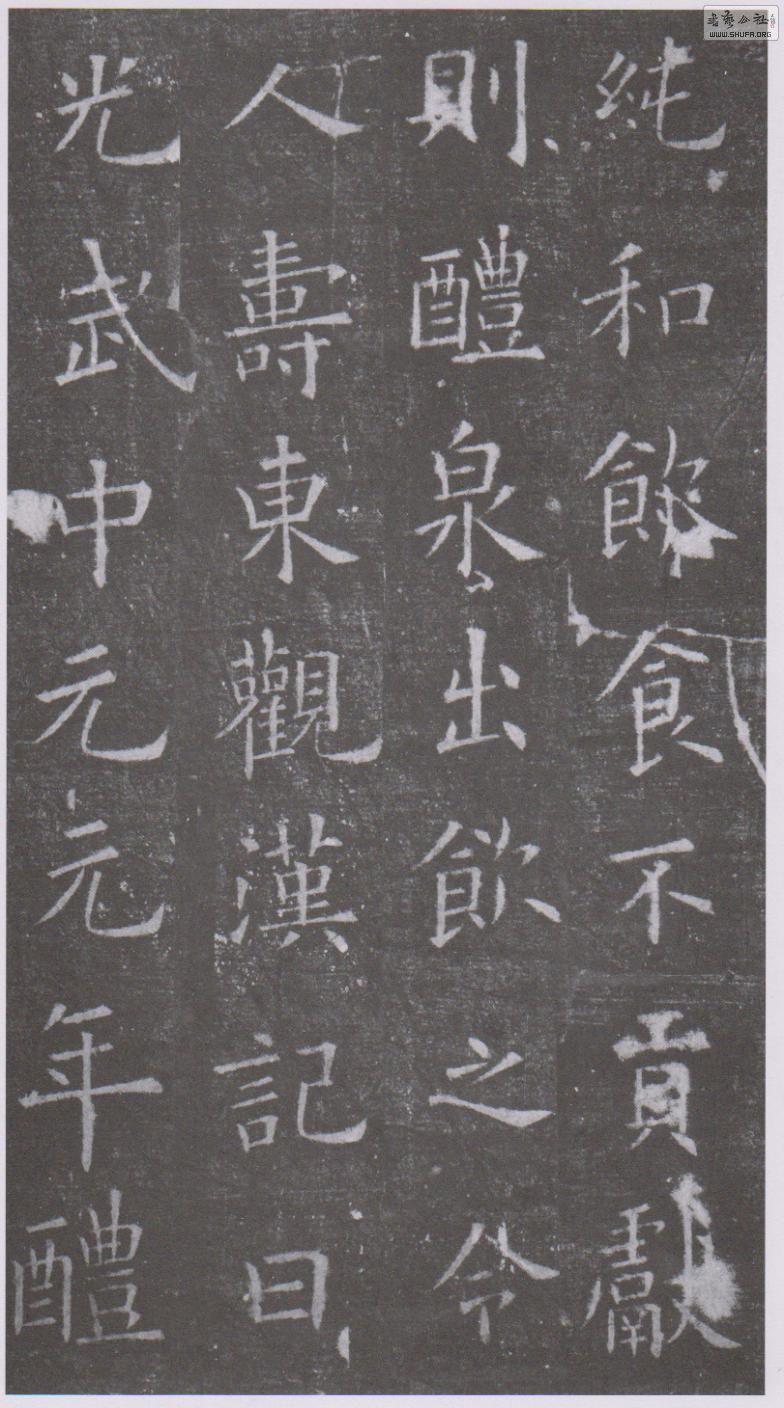 純和飲食不貢獻
則醴泉出飲之令
人壽東觀漢記曰
光武中元元年醴
WWW.SHUFA.ORG